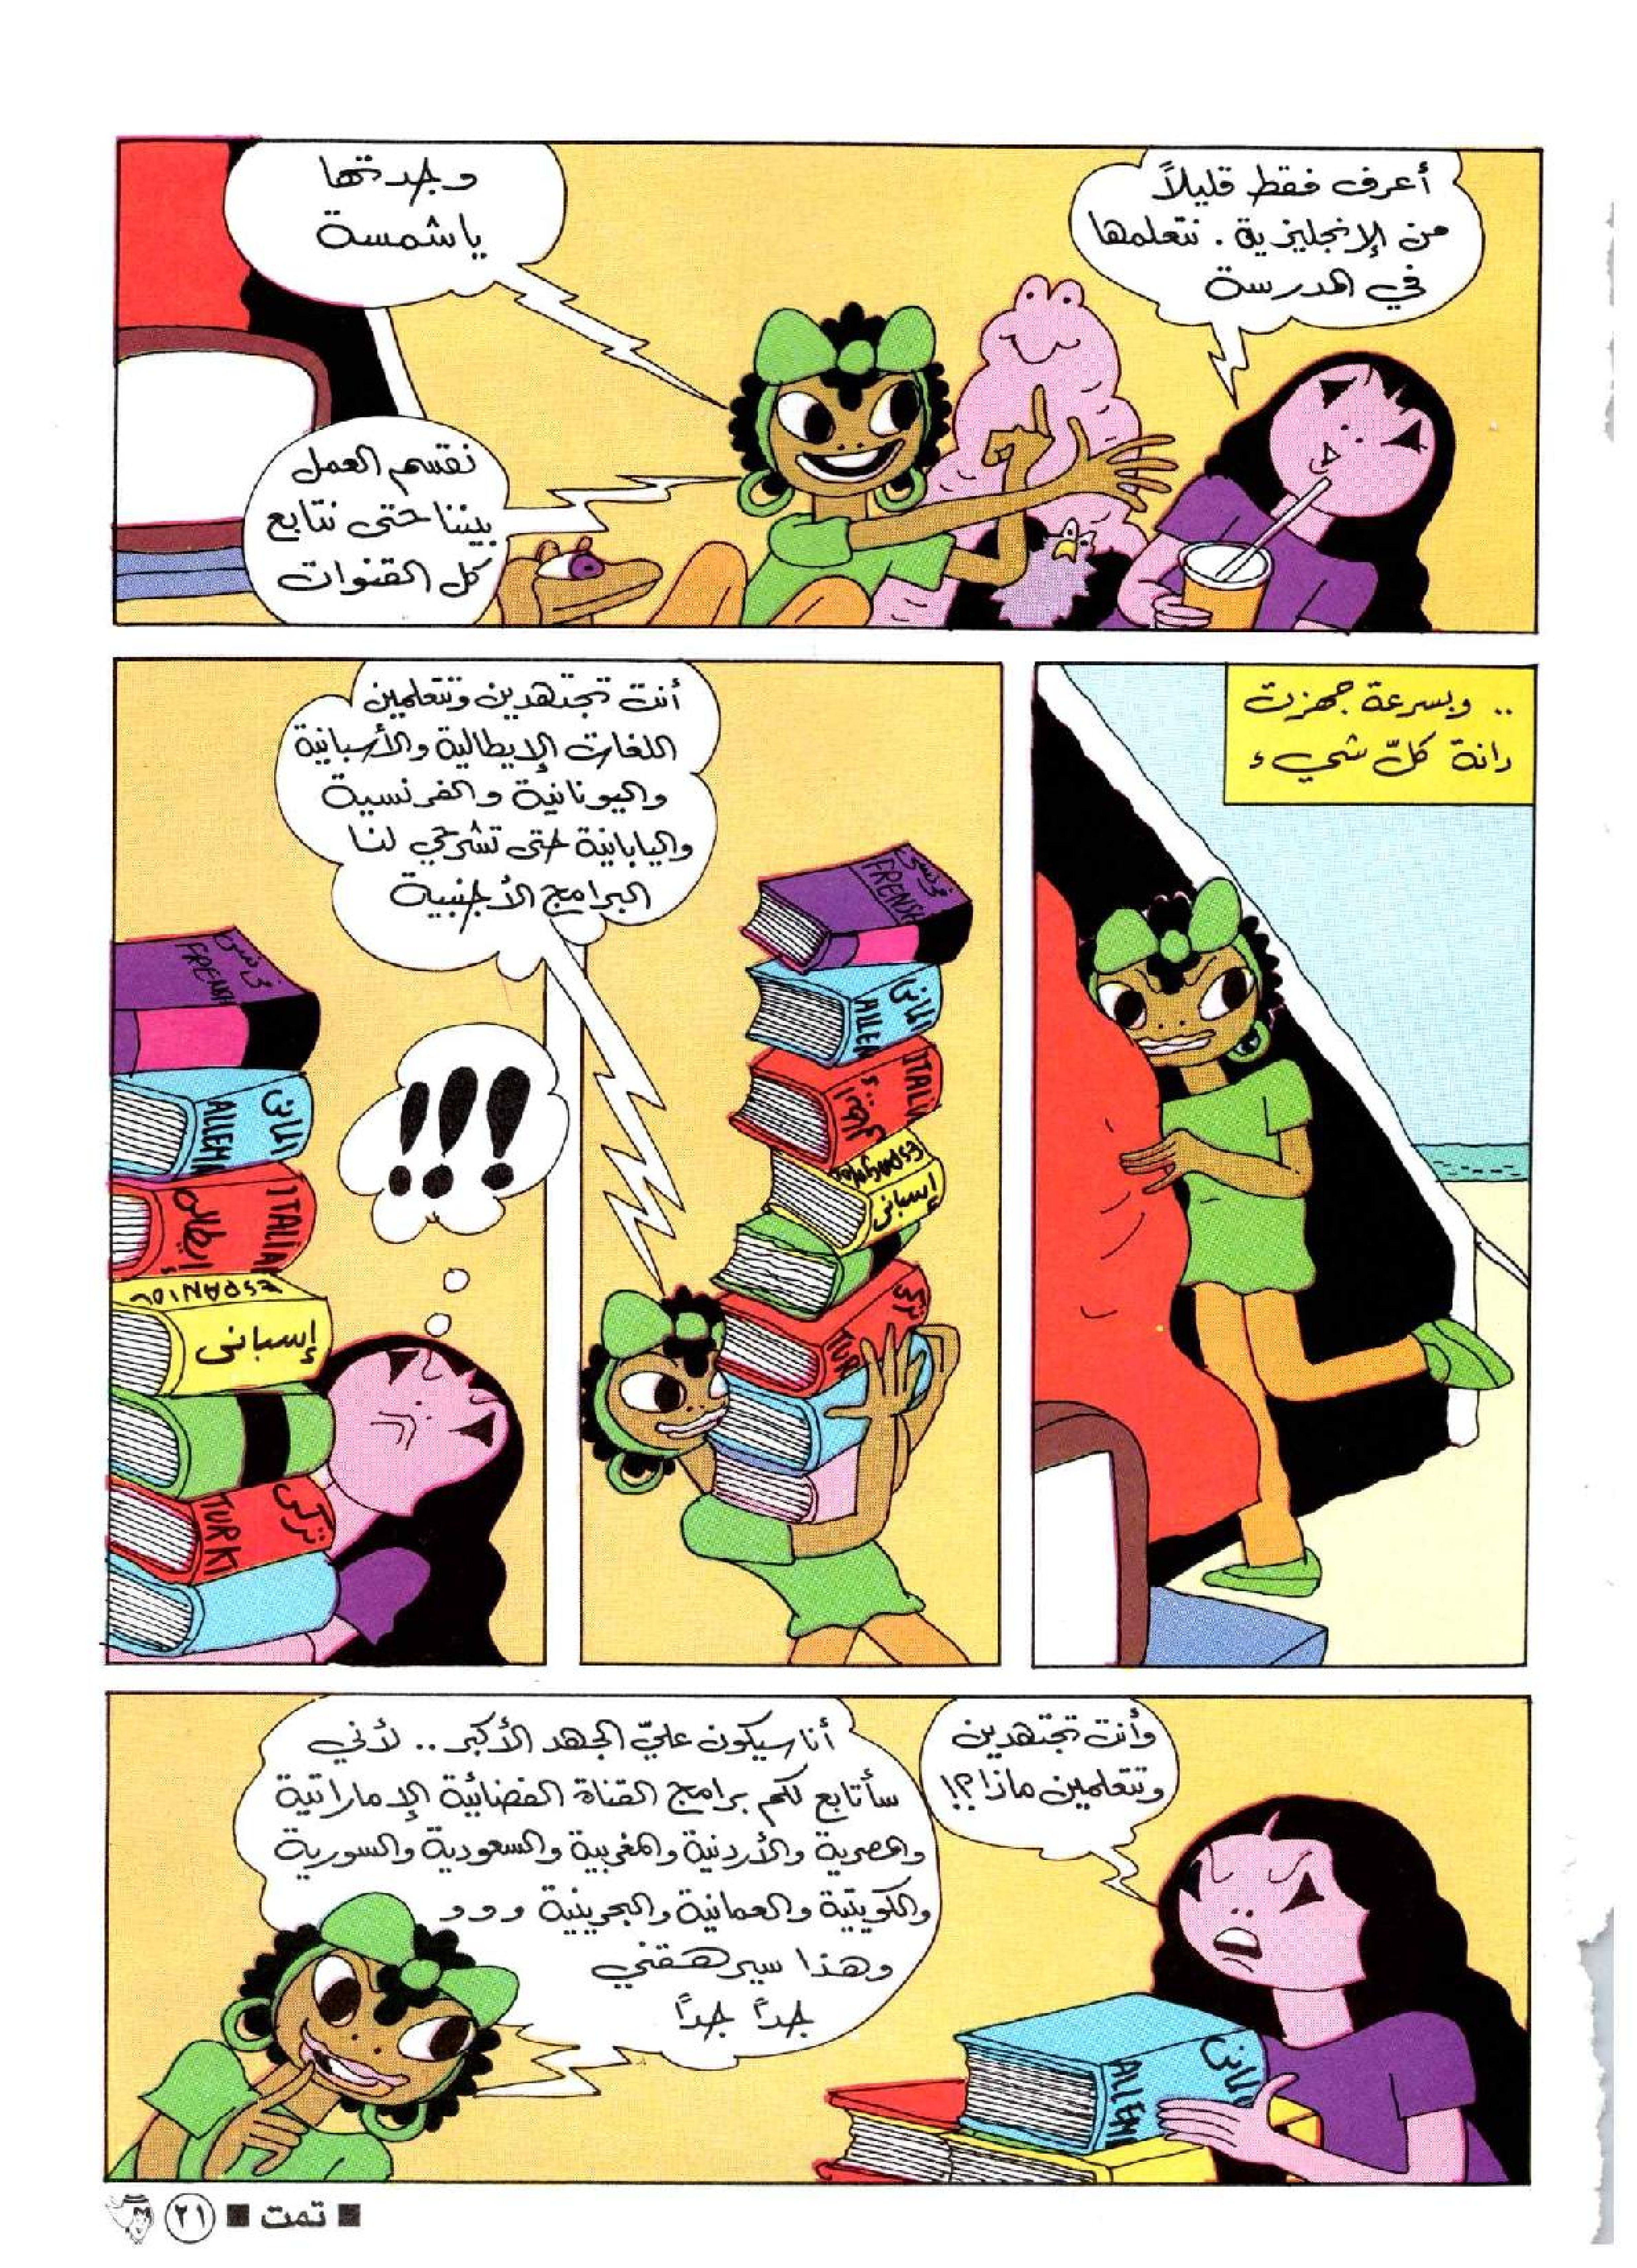 أعرف فقط قليلاً
من الإنجليزية . نتعلمها
في المدرسة
وجدتها
ياشمسة
نقتسم العمل
بيننا حتى نتابع
كل القنوات
.. وبسرعة جهزت
دانة كلّ شيء
أنت تجتهدين وتتعلمين
اللغات الإيطالية والأسبانية
واليونانية والفرنسية
واليابانية حتى تشرحي لنا
البرامج الأجنبية
FRENSH
ألماني
ALLEM
ITALI
إسباني
تركي
TUR
!!!
FRENSH
ألماني
ALLEM
ITALIA
إيطالي
ESPANIOL
إسباني
تركي
TURKI
وأنت تجتهدين
وتتعلمين ماذا؟!
أنا سيكون عليّ الجهد الأكبر .. لأني
سأتابع لكم برامج القناة الفضائية الإماراتية
والمصرية والأردنية والمغربية والسعودية والسورية
والكويتية والعمانية والبحرينية و و و
وهذا سيرهقني
جداً جداً
ALLEM
■ تمت ■ ٢١